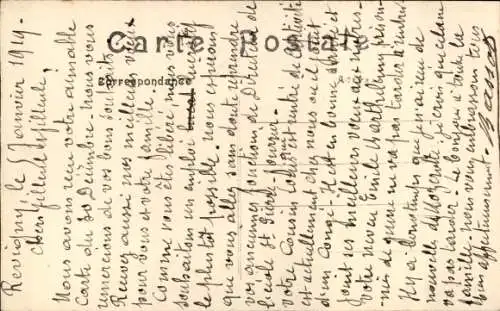 Carte Postale
Correspondance
Revigny, le 5 Janvier 1919.
Chers filleule et filleul,
Nous avons reçu votre aimable
Carte du 30 Décembre. Nous vous
remercions de vos bons souhaits
Recevez aussi nos meilleurs vœux
pour vous et votre famille
Comme vous êtes libéré nous vous
souhaitons un emploi
le plus tôt possible. nous espérons
que vous allez sans doute reprendre
vos anciennes fonctions de Directeur de
votre Cousin est rentré de captivité
et actuellement chez nous où il jouit
d'un congé. Il est en bonne santé et
joint ses meilleurs vœux aux nôtres.
votre neveu Emile est
nier de guerre ne va pas tarder à rentrer
Il y a longtemps que je n'ai eu de
nouvelle de je crois que cela ne
va pas tarder. Le bonjour à toute la
famille. nous vous embrassons tous
bien affectueusement.